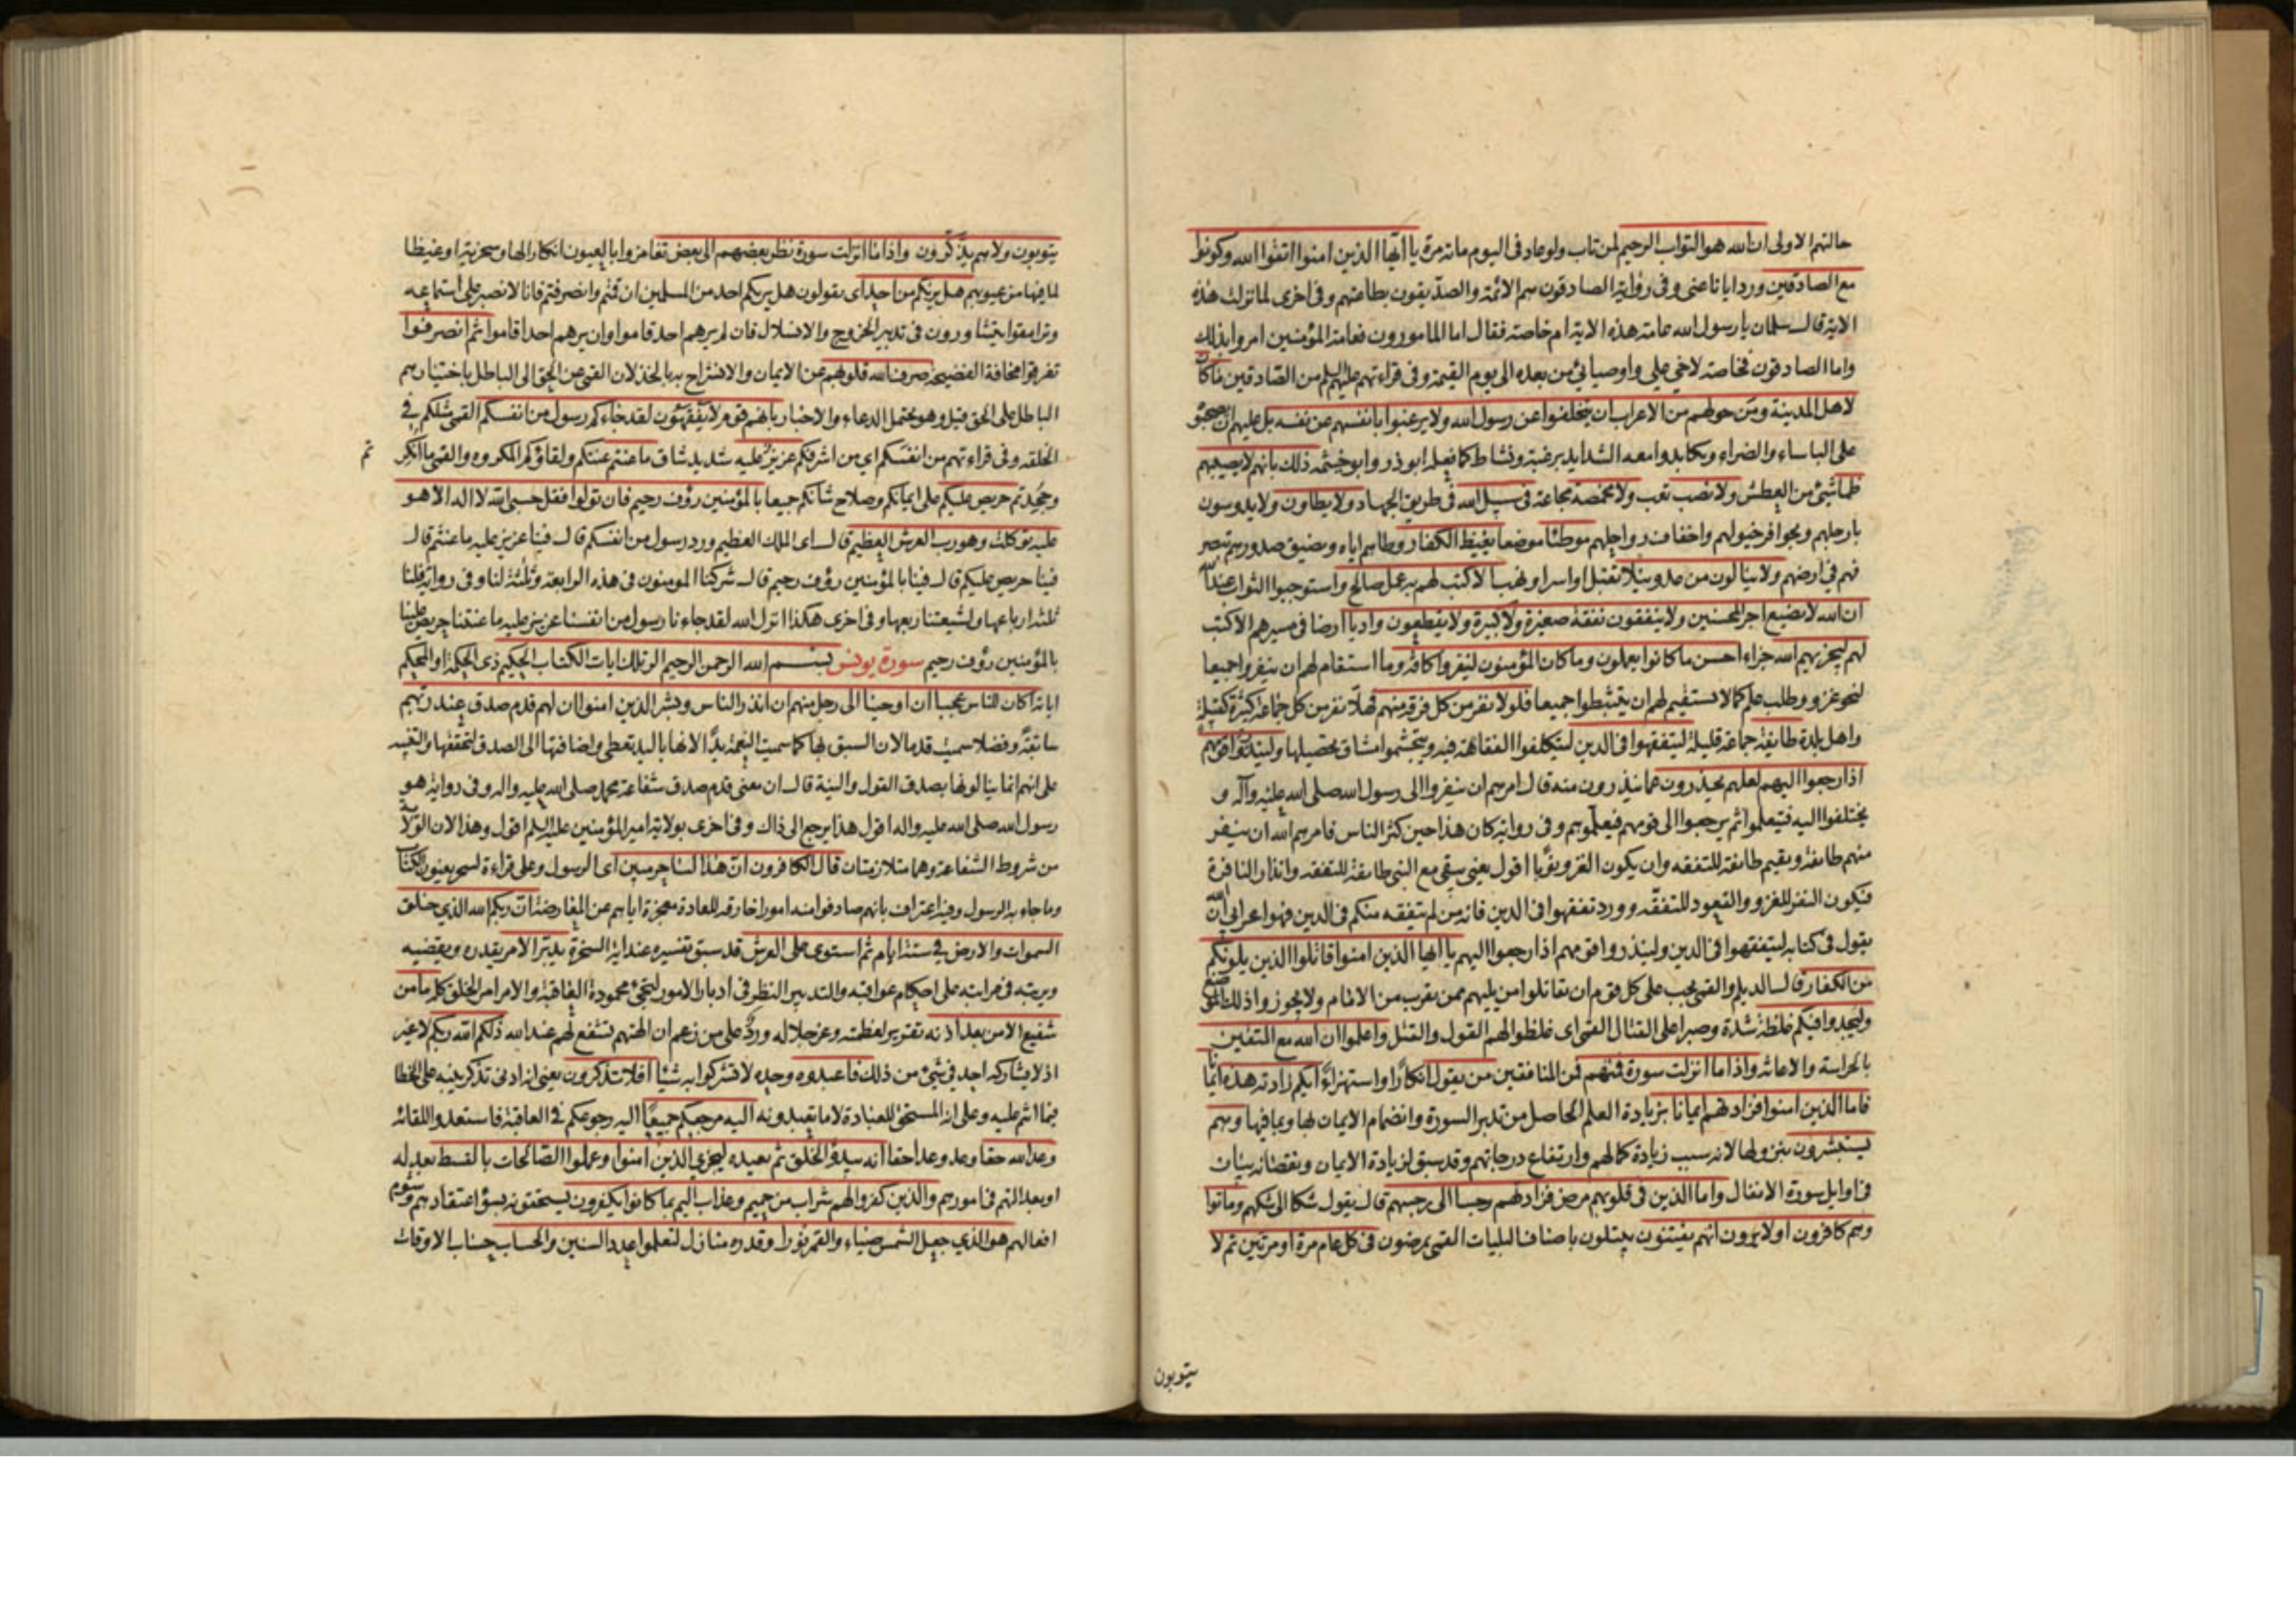 حالتهم الاولى ان الله هو التواب الرحيم لمن تاب ولو عاد فى اليوم مائة مرة يا ايها الذين امنوا اتقوا الله وكونوا
مع الصادقين ورد ايانا عنى وفى رواية الصادقون هم الائمة والصديقون بطاعتهم وفى اخرى لما نزلت هذه
الاية قال سلمان يا رسول الله عامة هذه الاية ام خاصة فقال اما المامورون فعامة المؤمنين امروا بذلك
واما الصادقون فخاصة لاخى على واوصيائى من بعده الى يوم القيمة وفى قراءتهم عليهم السلم من الصادقين ما كان
لاهل المدينة ومن حولهم من الاعراب ان يتخلفوا عن رسول الله ولا يرغبوا بانفسهم عن نفسه بل عليهم ان يصحبوه
على الباساء والضراء ويكابدوا معه الشدايد برغبة ونشاط كما فعله ابو ذر وابو خيثمة ذلك بانهم لا يصيبهم
ظما شئ من العطش ولا نصب تعب ولا مخمصة مجاعة فى سبيل الله فى طريق الجهاد ولا يطاون ولا يدوسون
بارجلهم وبحوافر خيولهم واخفاف رواحلهم موطئا موضعا يغيظ الكفار وطاهم اياه ويضيق صدورهم بتصر
فهم فى ارضهم ولا ينالون من عدو نيلا قتلا او اسرا او نهبا الا كتب لهم به عمل صالح واستوجبوا الثواب عندنا
ان الله لا يضيع اجر المحسنين ولا ينفقون نفقة صغيرة ولا كبيرة ولا يقطعون واديا ارضا فى مسيرهم الا كتب
لهم ليجزيهم الله جزاء احسن ما كانوا يعملون وما كان المؤمنون لينفروا كافة وما استقام لهم ان ينفروا جميعا
لنحو غزو وطلب علم كما لا يستقيم لهم ان يتثبطوا جميعا فلولا نفر من كل فرقة منهم فهلا نفر من كل جماعة كثيرة كقبيلة
واهل بلدة طايفة جماعة قليلة ليتفقهوا فى الدين ليتكلفوا الفقاهة فيه ويتجشموا مشاق تحصيلها ولينذروا قومهم
اذا رجعوا اليهم لعلهم يحذرون عما ينذرون منه قال امرهم ان ينفروا الى رسول الله صلى الله عليه وآله و
يختلفوا اليه فيتعلموا ثم يرجعوا الى قومهم فيعلموهم وفى رواية كان هذا حين كثر الناس فامرهم الله ان ينفر
منهم طائفة ويقيم طائفة للتفقه وان يكون الغزو نوبا اقول يعنى يبقى مع النبى طائفة للتفقه وانذار النافرة
فيكون النفر للغزو والقعود للتفقه وورد تفقهوا فى الدين فانه من لم يتفقه منكم فى الدين فهو اعرابى ان الله
يقول فى كتابه ليتفقهوا فى الدين ولينذروا قومهم اذا رجعوا اليهم يا ايها الذين امنوا قاتلوا الذين يلونكم
من الكفار قال الديلم والقمى يجب على كل قوم ان يقاتلوا من يليهم ممن يقرب من الامام ولا يجوز واذلك الموضع
وليجدوا فيكم غلظة شدة وصبرا على القتال القمى اى غلظوا لهم القول والقتل واعلموا ان الله مع المتقين
بالحراسة والاعانة واذا ما انزلت سورة فمنهم فمن المنافقين من يقول انكارا واستهزاء ايكم زادته هذه ايمانا
فاما الذين امنوا فزادتهم ايمانا بزيادة العلم الحاصل من تدبر السورة وانضمام الايمان بها وبما فيها وهم
يستبشرون بنزولها لانه سبب زيادة كمالهم وارتفاع درجاتهم وقد سبق لزيادة الايمان ونقصانه بيان
فى اوايل سورة الانفال واما الذين فى قلوبهم مرض فزادتهم رجسا الى رجسهم قال يقول شكا الى شكهم وماتوا
وهم كافرون اولا يرون انهم يفتنون يبتلون باصناف البليات القمى يمرضون فى كل عام مرة او مرتين ثم لا
يتوبون
يتوبون ولا هم يذكرون واذا ما انزلت سورة نظر بعضهم الى بعض تغامزوا بالعيون انكارا لها وسخرية او غيظا
لما فيها من عيوبهم هل يريكم من احد اى يقولون هل يريكم احد من المسلمين ان قمتم وانصرفتم فانا لا نصبر على استماعه
وترامقوا يتشاورون فى تدبير الخروج والانسلال فان لم يرهم احد قاموا وان يرهم احد اقاموا ثم انصرفوا
تفرقوا مخافة الفضيحة صرف الله قلوبهم عن الايمان والانشراح به بالخذلان القمى عن الحق الى الباطل باختيارهم
الباطل على الحق قيل وهو يحتمل الدعاء والاخبار بانهم قوم لا يفقهون لقد جاءكم رسول من انفسكم القمى مثلكم فى
الخلقة وفى قراءتهم من انفسكم اى من اشرفكم عزيز عليه شديد شاق ما عنتم عنتكم ولقاؤكم المكروه والقمى ما انكر
تم
وجحدتم حريص عليكم على ايمانكم وصلاح شانكم جميعا بالمؤمنين رؤف رحيم فان تولوا فقل حسبى الله لا اله الا هو
عليه توكلت وهو رب العرش العظيم قال اى الملك العظيم ورد رسول من انفسكم قال فينا عزيز عليه ما عنتم قال
فينا حريص عليكم قال فينا بالمؤمنين رؤف رحيم قال شركنا المومنون فى هذه الرابعة وثلثة لنا وفى رواية فلنا
ثلثة ارباعها ولشيعتنا ربعها وفى اخرى هكذا انزل الله لقد جاءنا رسول من انفسنا عزيز عليه ما عنتنا حريص علينا
بالمؤمنين رؤف رحيم سورة يونس بسم الله الرحمن الرحيم الر تلك ايات الكتاب الحكيم ذى الحكمة او المحكم
اياته اكان للناس عجبا ان اوحينا الى رجل منهم ان انذر الناس وبشر الذين امنوا ان لهم قدم صدق عند ربهم
سابقة وفضلا سميت قدما لان السبق بها كما سميت النعمة يدا لانها باليد تعطى واضافتها الى الصدق لتحققها والتنبيه
على انهم انما ينالونها بصدق القول والنية قال ان معنى قدم صدق شفاعة محمد صلى الله عليه واله وفى رواية هو
رسول الله صلى الله عليه واله اقول هذا يرجع الى ذاك وفى اخرى بولاية امير المؤمنين عليه السلم اقول وهذا لان الولاية
من شروط الشفاعة وهما متلازمتان قال الكافرون ان هذا لساحر مبين اى الرسول وعلى قراءة لسحر يعنون الكتاب
وما جاء به الرسول وفيه اعتراف بانهم صادفوا منه امورا خارقه للعادة معجزة اياهم عن المعارضة ان ربكم الله الذى خلق
السموات والارض فى ستة ايام ثم استوى على العرش قد سبق تفسيره عند اية السخرة يدبر الامر يقدره ويقضيه
ويرتبه فى مراتبه على احكام عواقبه والتدبير النظر فى ادبار الامور لتجئ محمودة العاقبة والامر امر الخلق كله ما من
شفيع الا من بعد اذنه تقرير لعظمته وعز جلاله ورد على من زعم ان الهتهم تشفع لهم عند الله ذلكم الله ربكم لا غير
اذ لا يشاركه احد فى شئ من ذلك فاعبدوه وحده لا تشركوا به شيئا افلا تذكرون يعنى انه ادنى تذكر ينبه على الخطا
فيما انتم عليه وعلى انه المستحق للعبادة لا ما تعبدونه اليه مرجعكم جميعا اليه رجوعكم فى العاقبة فاستعدوا للقائه
وعد الله حقا وعد وعدا حقا انه يبدؤ الخلق ثم يعيده ليجزى الذين امنوا وعملوا الصالحات بالقسط بعدله
او بعدالتهم فى امورهم والذين كفروا لهم شراب من حميم وعذاب اليم بما كانوا يكفرون يستحقونه بسؤ اعتقادهم وشوم
افعالهم هو الذى جعل الشمس ضياء والقمر نورا وقدره منازل لتعلموا عدد السنين والحساب حساب الاوقات